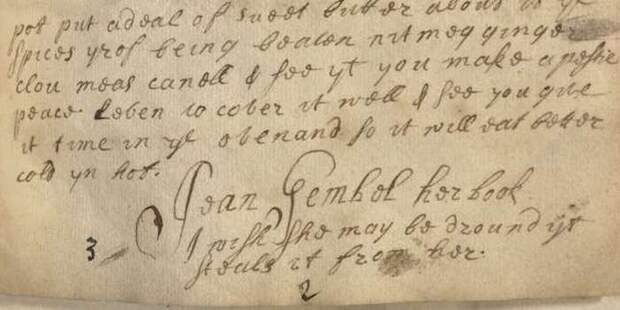 pot put adeal of sweet butter about it ye
spices yrof being beaten nitmeg ginger
clou meas canell & see yt you make a pestie
peace Leben to cober it well & see you give
it time in ye obenand so it will eat better
cold yn hot.
Jean Gembel her book
I wish she may be dround yt
steals it from her.
3
2